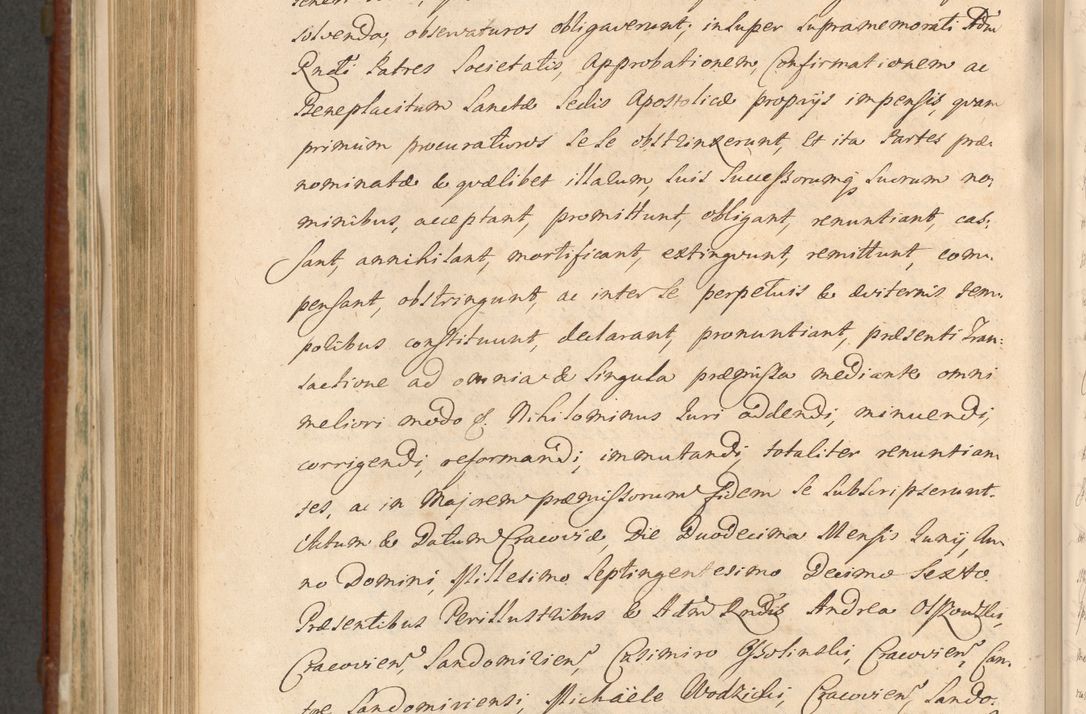 solvenda, observaturos obligaverunt; insuper supramemorati Adm
Rndi Patres Societatis, Approbationem, Confirmationem ac
Beneplacitum Sanctæ Sedis Apostolicæ proprijs impensis, quam
primum procuraturos se se obstrinxerunt, Et ita Partes præ-
nominatæ & quælibet illarum, suis Successorumq suorum no-
minibus, acceptant, promittunt, obligant, renuntiant, cas-
sant, annihilant, mortificant, extingvunt, remittunt, com-
pensant, obstringunt, ac inter se perpetuis & æviternis tem-
poribus constituunt, declarant, pronuntiant, præsenti Tran-
sactione ad omnia & singula præmissa mediante omni
meliori modo &. Nihilominus Iuri addendi, minuendi,
corrigendi, reformandi, immutandi, totaliter renuntian-
tes, ac in Majorem præmissorum fidem se subscripserunt.
Actum & Datum Cracoviæ, Die Duodecima Mensis Iunij, An-
no Domini, Millesimo Septingentesimo Decimo Sexto.
Præsentibus Perillustribus & Adm Rndis Andrea
Cracovien, Sandomirien, Casimiro Ossolinski, Cracovien, Can-
tre Sandomiriensi, Michaele Wodzicki, Cracovien, Sando-